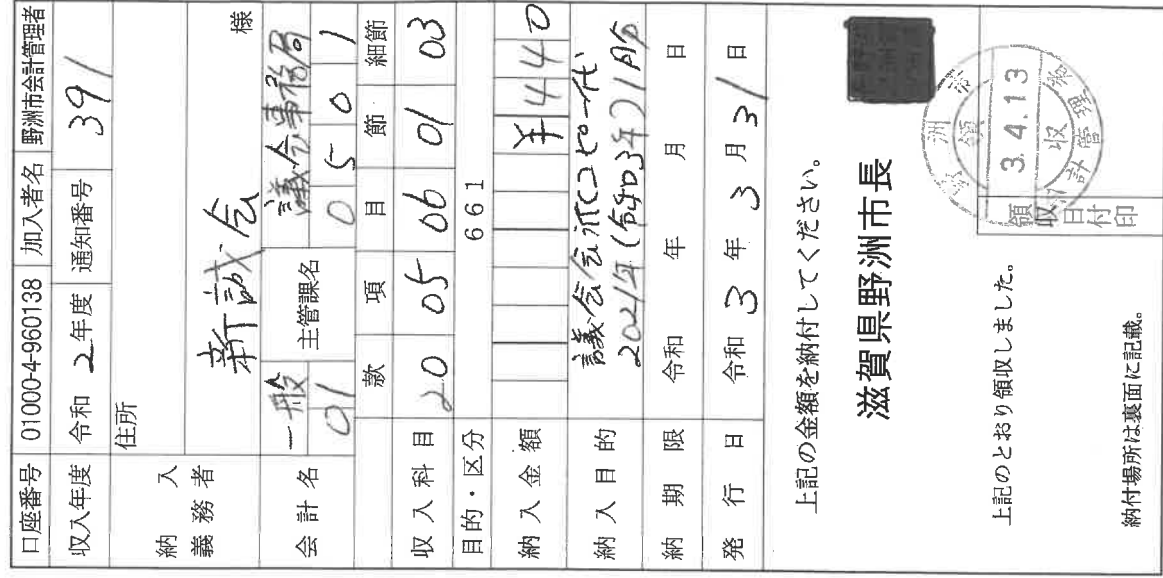 口座番号 01000-4-960138 加入者名 野洲市会計管理者
収入年度 令和 2年度 通知番号 391
納入義務者 住所
新誠会 様
会計名 一般 主管課名 議会事務局
01 0 5 0 1
款 項 目 節 細節
収入科目 20 05 06 01 03
目的・区分 661
納入金額 ¥440
納入目的 議会会派コピー代
2021年(令和3年)1月分
納期限 令和 年 月 日
発行日 令和 3年 3月 31日
上記の金額を納付してください。
滋賀県野洲市長
上記のとおり領収しました。
領収日付印
野洲市
領収
3.4.13
会計管理者
納付場所は裏面に記載。